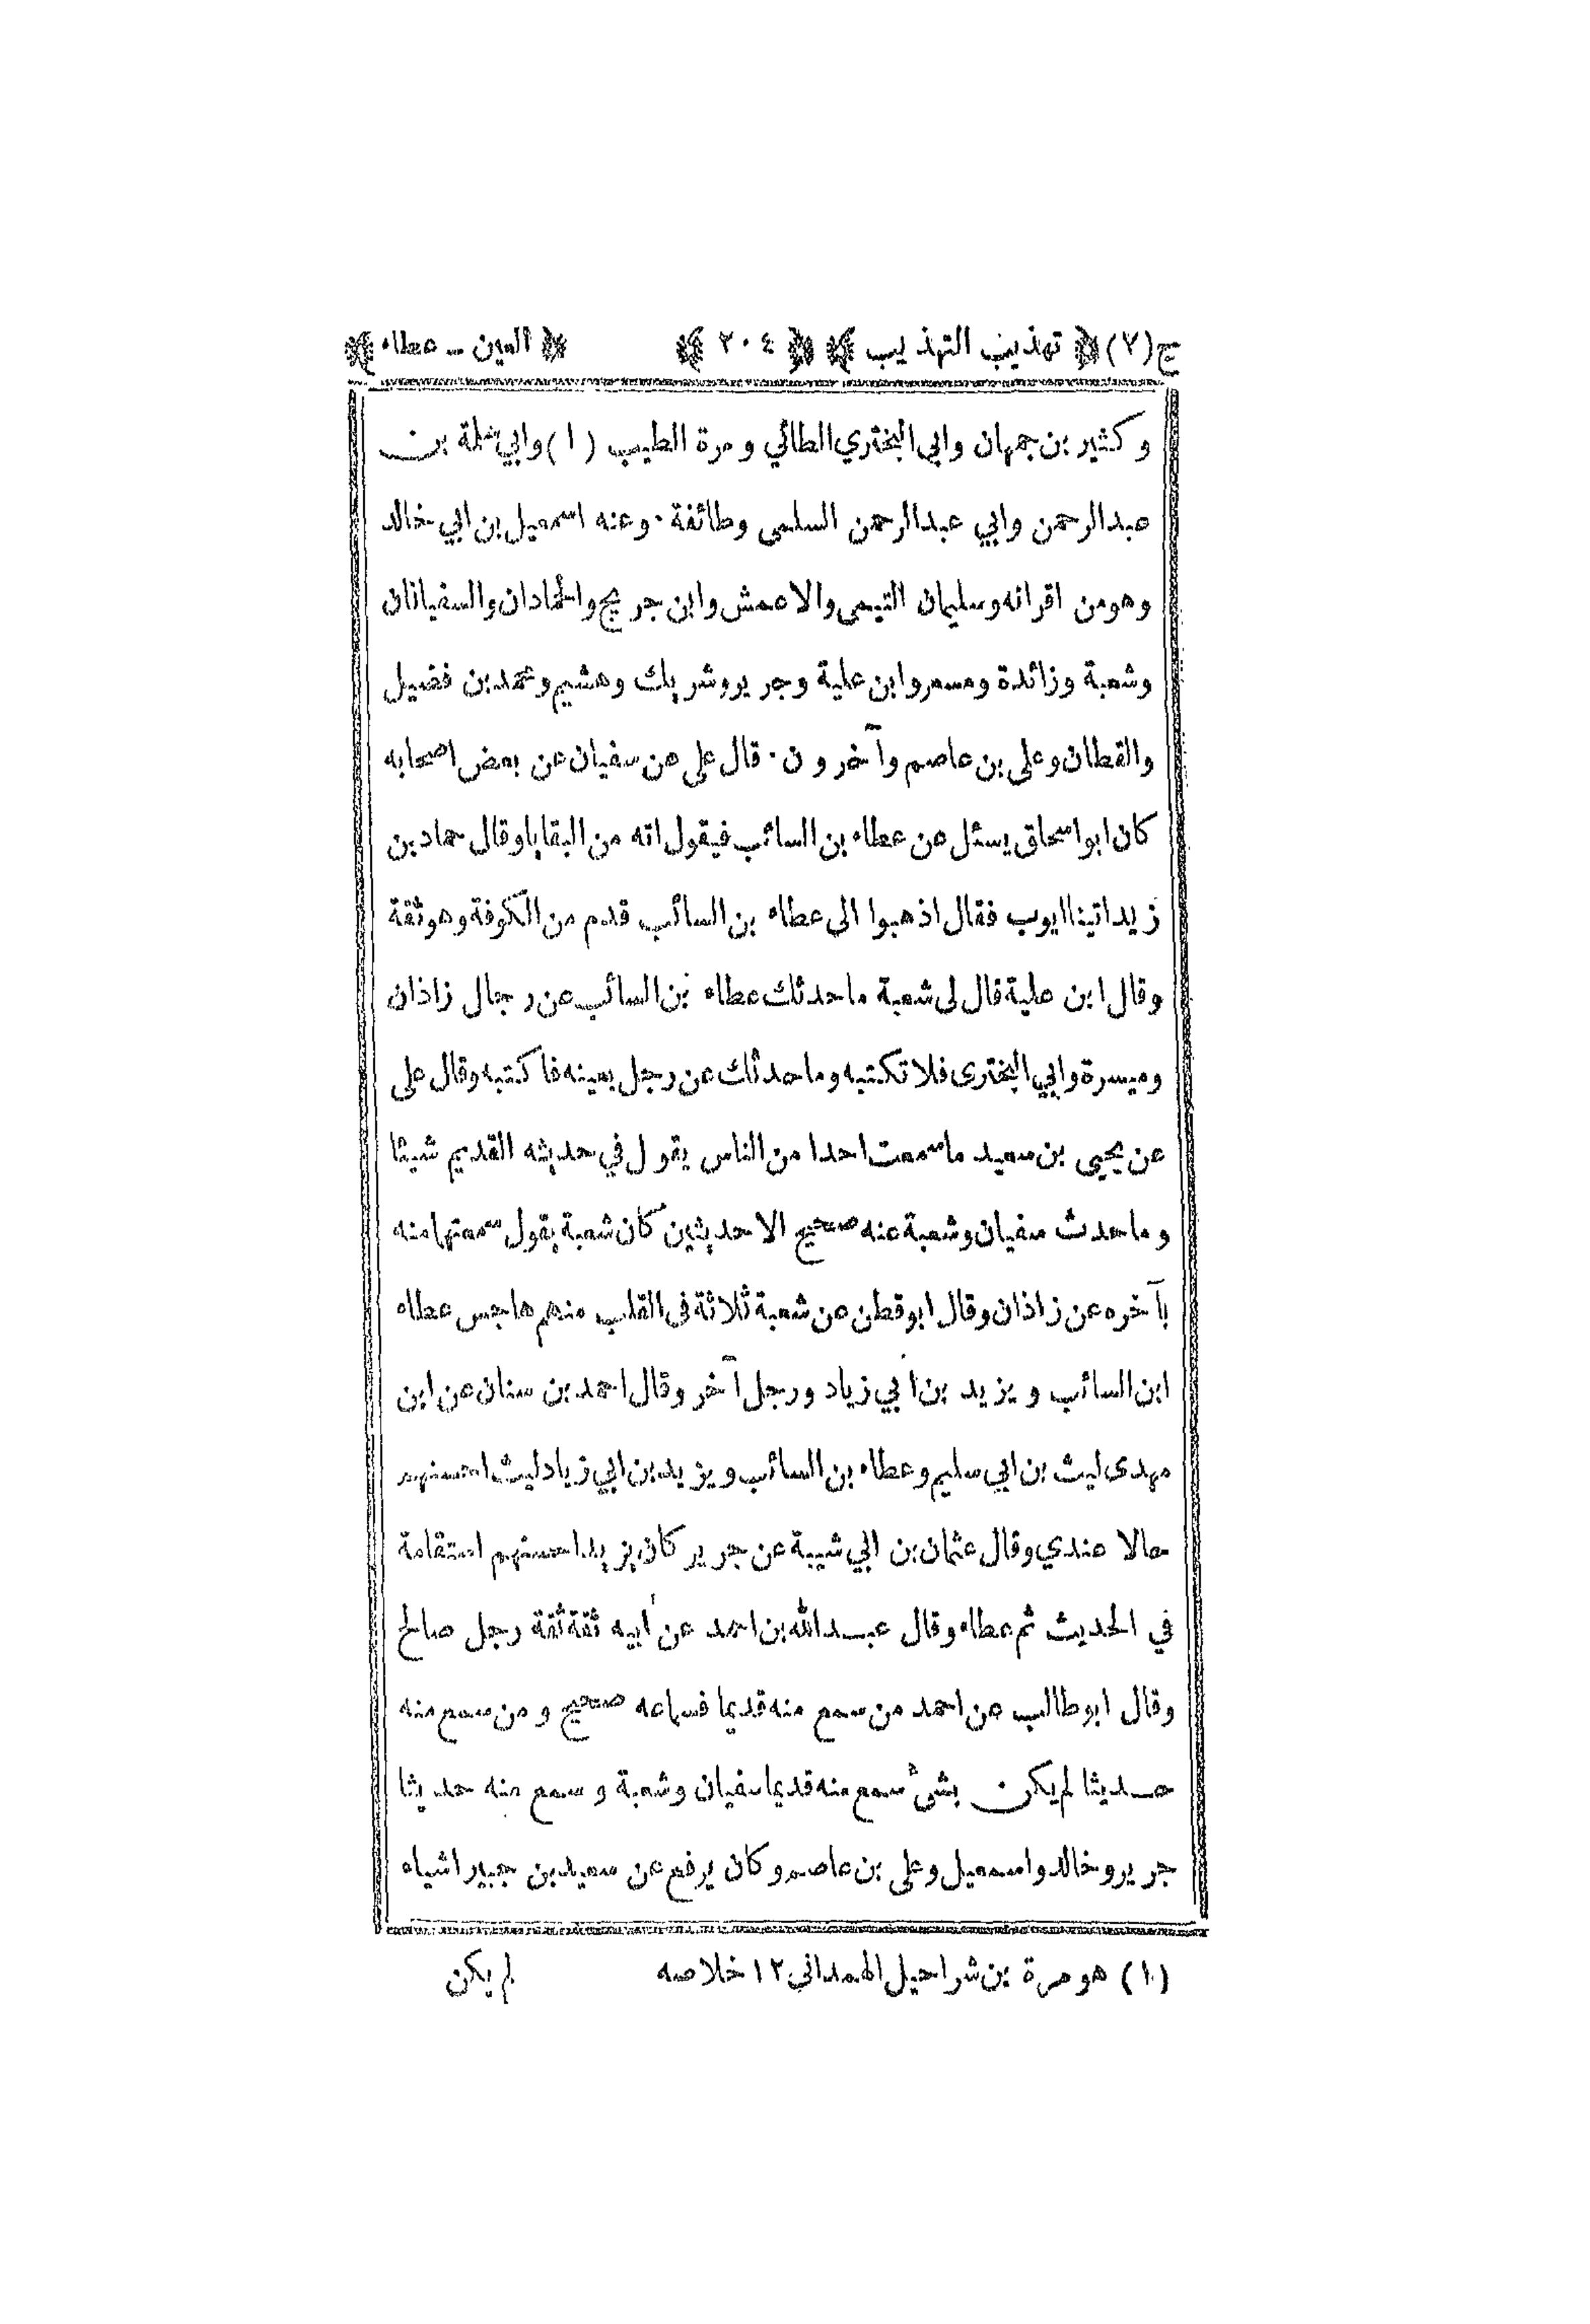 ج (٧) ﴿ تهذيب التهذيب ﴾ ﴿ ٢٠٤ ﴾ ﴿ العين – عطاء ﴾
وكثير بن جمهان وابي البختري الطائي ومرة الطيب (١) وابي سلمة بن
عبد الرحمن وابي عبد الرحمن السلمى وطائفة. وعنه اسمعيل بن ابي خالد
وهو من اقرانه وسليمان التيمى والاعمش وابن جريج والحمادان والسفيانان
وشعبة وزائدة ومسعر وابن علية وجرير وشريك وهشيم ومحمد بن فضيل
والقطان وعلى بن عاصم وآخرون. قال على عن سفيان عن بعض اصحابه
كان ابو اسحاق يسئل عن عطاء بن السائب فيقول انه من البقايا وقال حماد بن
زيد اتينا ايوب فقال اذهبوا الى عطاء بن السائب قدم من الكوفة وهو ثقة
وقال ابن علية قال لى شعبة ما حدثك عطاء بن السائب عن رجال زاذان
وميسرة وابي البخترى فلا تكتبه وما حدثك عن رجل بعينه فاكتبه وقال على
عن يحيى بن سعيد ما سمعت احدا من الناس يقول في حديثه القديم شيئا
وما حدث سفيان وشعبة عنه صحيح الا حديثين كان شعبة يقول سمعتهما منه
بآخره عن زاذان وقال ابو قطن عن شعبة ثلاثة فى القلب منهم هاجس عطاء
ابن السائب ويزيد بن ابي زياد ورجل آخر وقال احمد بن سنان عن ابن
مهدى ليث بن ابي سليم وعطاء بن السائب ويزيد بن ابي زياد ليث احسنهم
حالا عندي وقال عثمان بن ابي شيبة عن جرير كان يزيد احسنهم استقامة
في الحديث ثم عطاء وقال عبد الله بن احمد عن ابيه ثقة ثقة رجل صالح
وقال ابو طالب عن احمد من سمع منه قديما فسماعه صحيح ومن سمع منه
حديثا لم يكن بشئ سمع منه قديما سفيان وشعبة وسمع منه حديثا
جرير وخالد واسمعيل وعلى بن عاصم وكان يرفع عن سعيد بن جبير اشياء
(١) هو مرة بن شراحيل الهمداني ١٢ خلاصه لم يكن